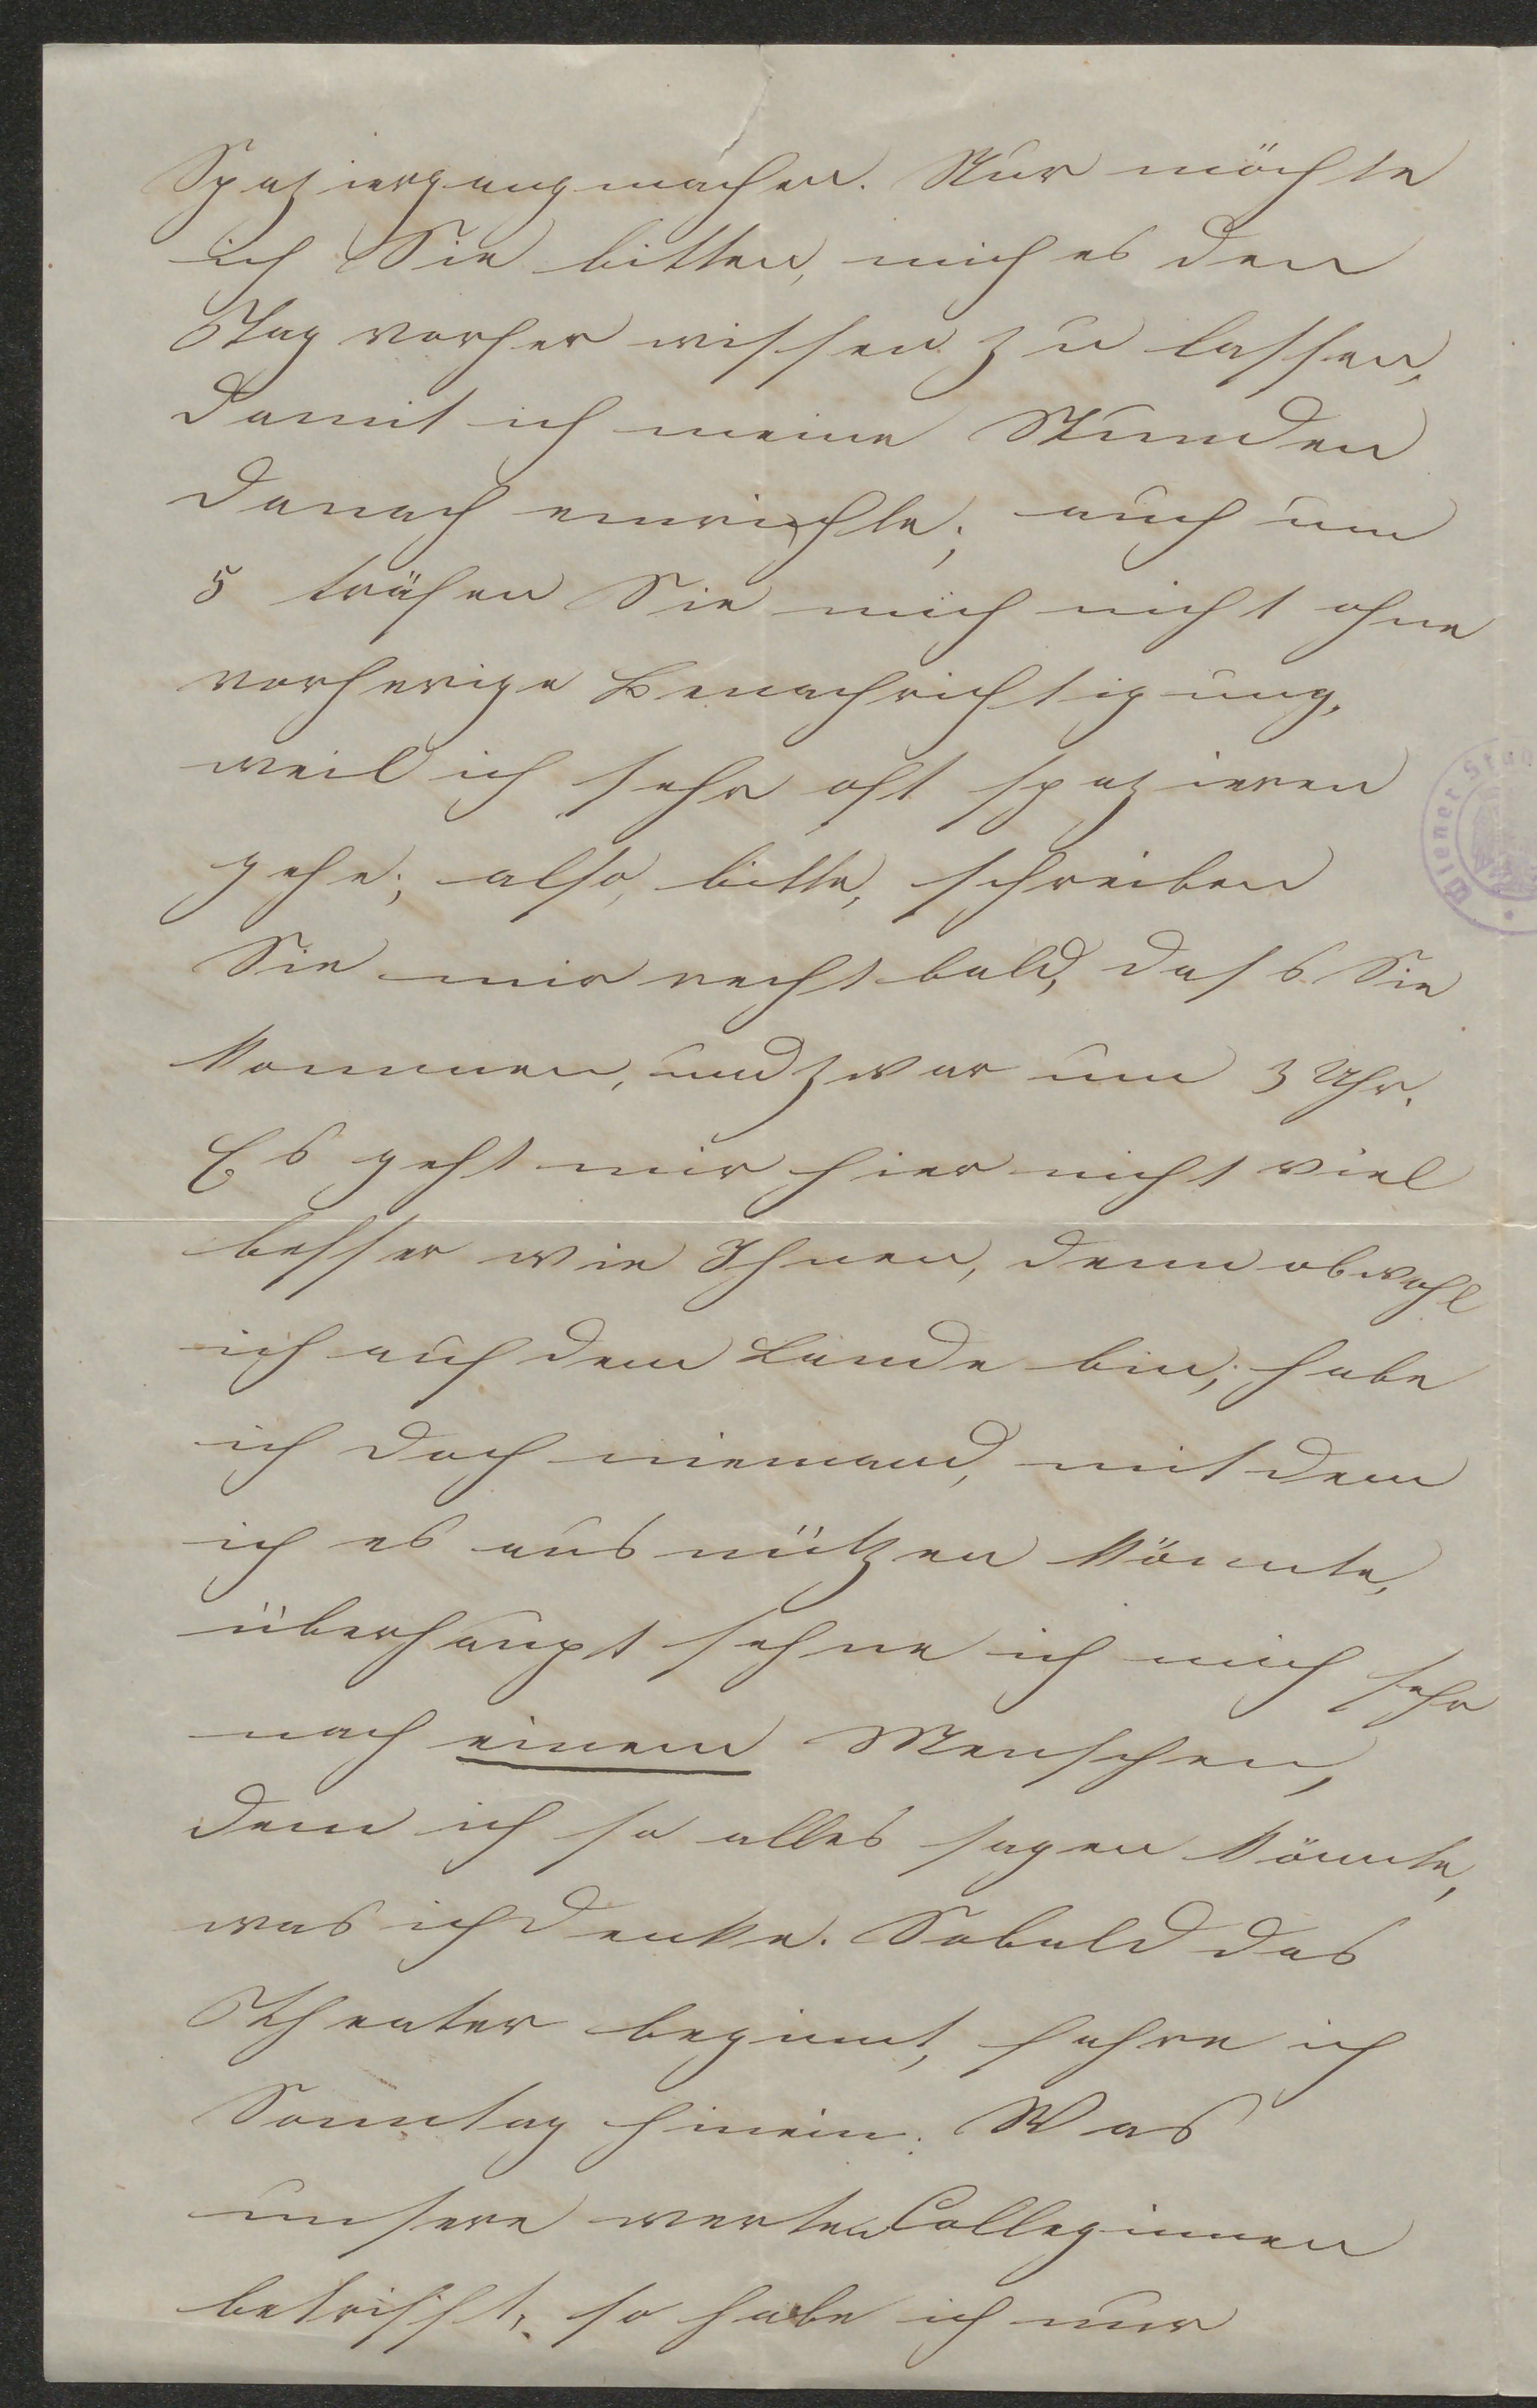 Spaziergang machen. Nur möchte
ich Sie bitten, mich es den
Tag vorher wissen zu lassen,
damit ich meine Stunden
danach einrichte; auch um
5 träfen Sie mich nicht ohne
vorherige Benachrichtigung,
weil ich sehr oft spazieren
gehe; also, bitte, schreiben
Sie mir recht bald, dass Sie
kommen, und zwar um 3 Uhr.
Es geht mir hier nicht viel
besser wie Ihnen, denn obwohl
ich auf dem Lande bin, habe
ich doch niemand, mit dem
ich es ausnützen könnte,
überhaupt sehne ich mich sehr
nach einem Menschen,
dem ich so alles sagen könnte,
was ich denke. Sobald das
Theater beginnt, fahre ich
Sonntag hinein. Was
unsere werten Colleginnen
betrifft, so habe ich nur
Wiener Sta